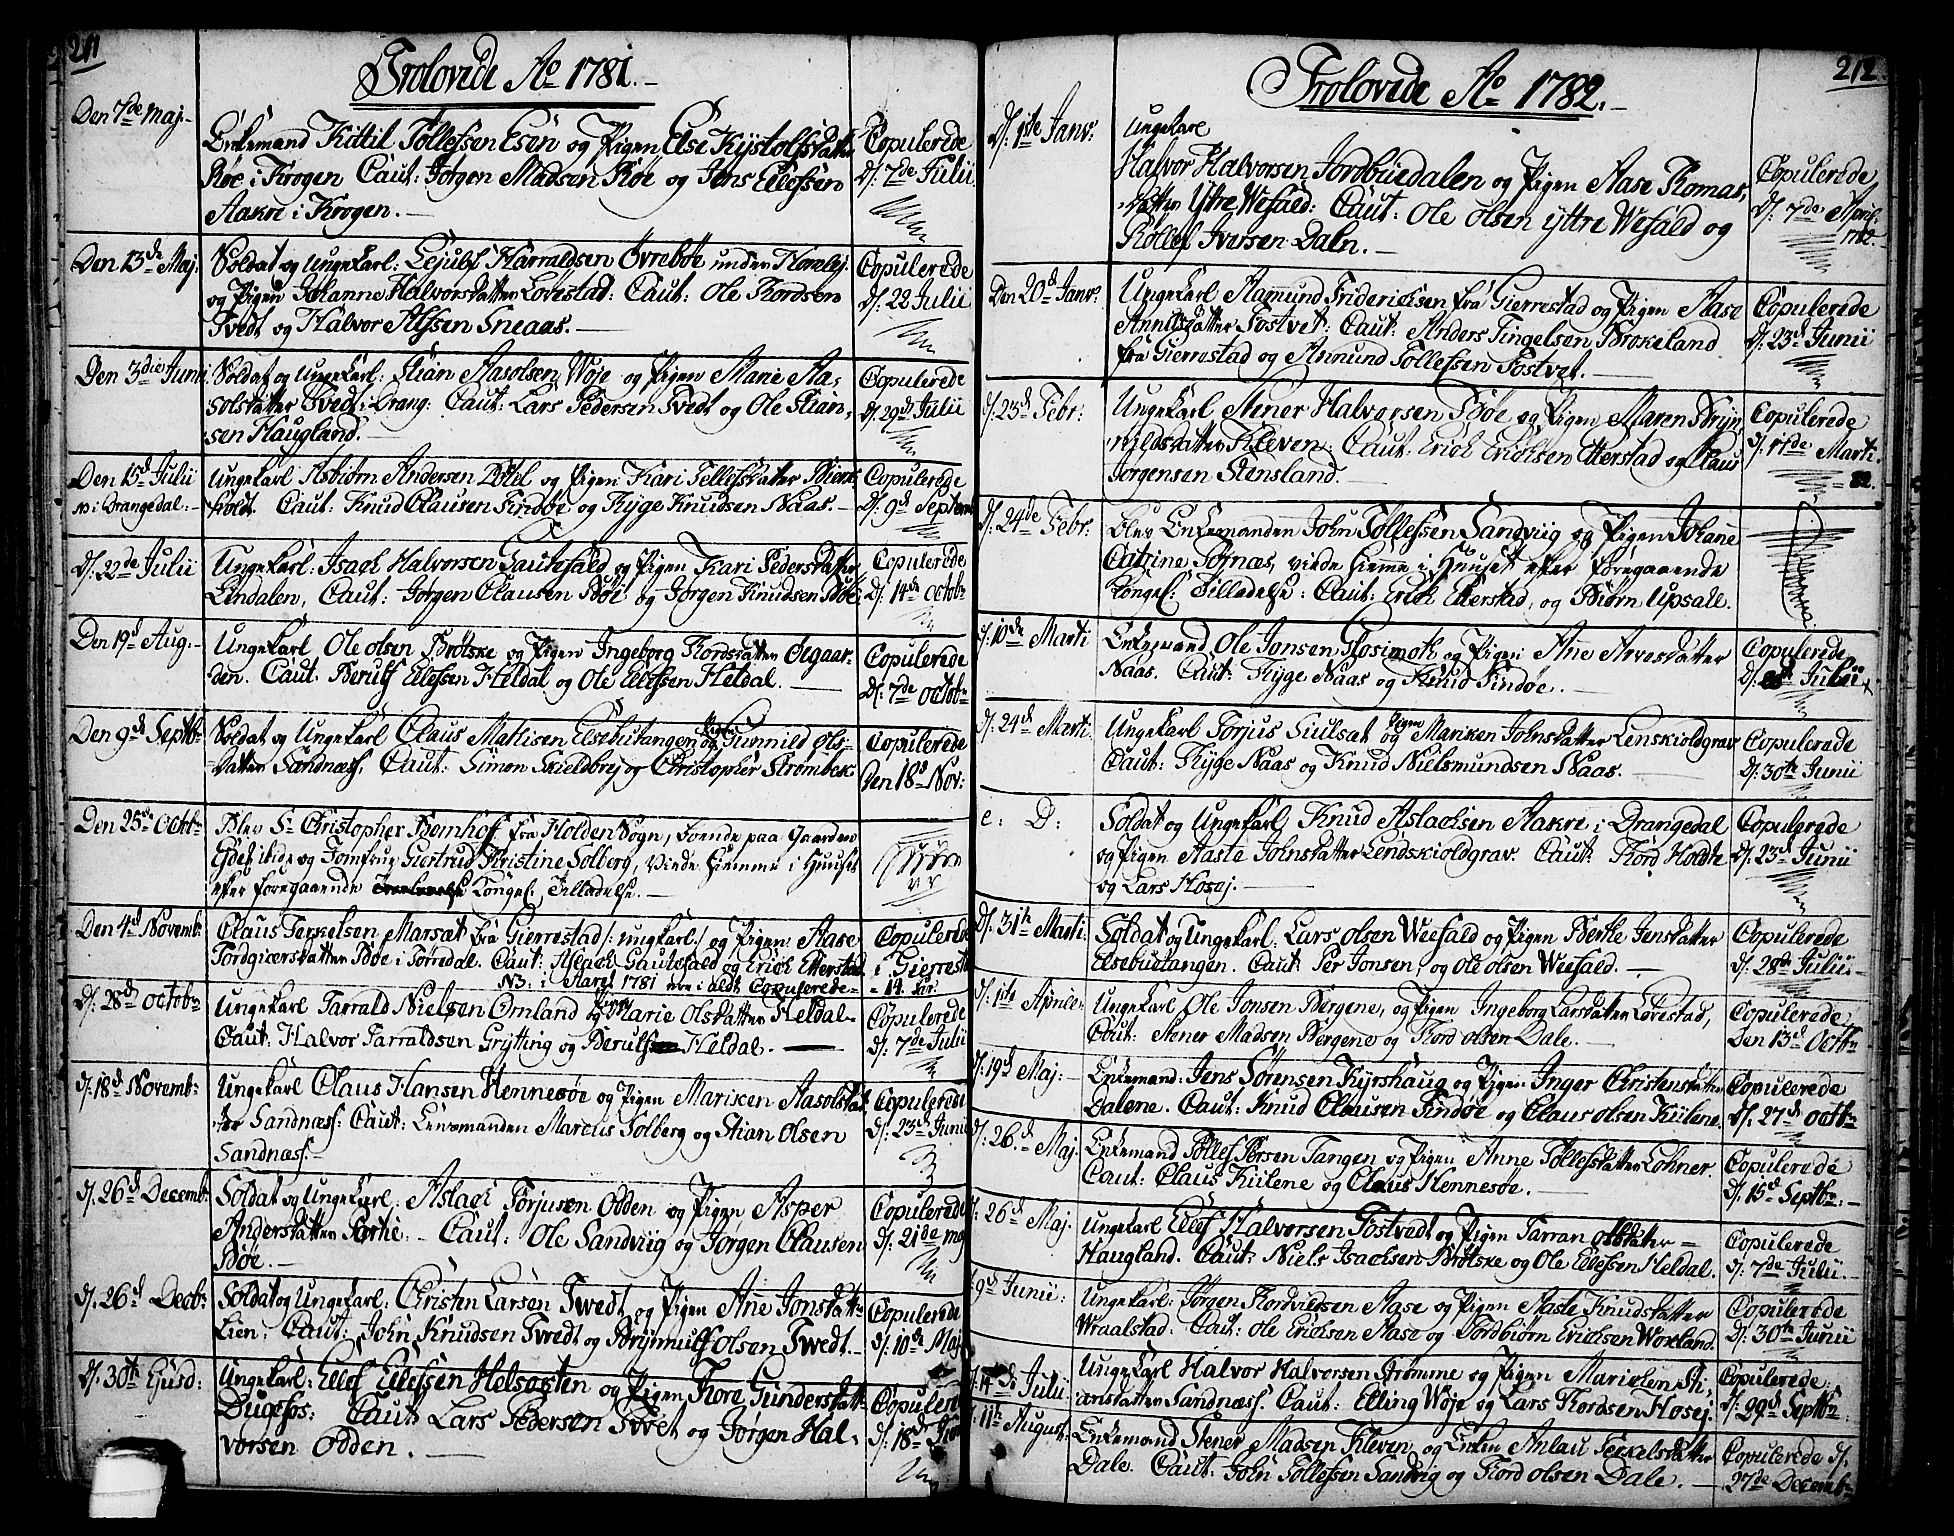 211
Trolovede Ao 1781.
Den 7de Maj
Enkemand Kittil Tollefsen Esen og Pigen Else Kystolfsdatter
Bøe i Krogen Caut: Jørgen Madsen Bøe og Jens Ellefsen
Aakre i Krogen.
Copulerede
d. 7de Julii
Den 13de Maj.
Soldat og Ungekarl: Lejulf Harraldsen Øvrebøe under
og Pigen Johanne Halvorsdatter Lovestad: Caut: Ole Tordsen
Tvedt og Halvor Alfsen Sneaas.
Copulerede
d. 22 Julii
Den 3die Junii
Soldat og Ungekarl: Stian Aasolsen Woje og Pigen Marie Aa-
solsdatter Tvedt i Drang: Caut: Lars Pedersen Tvedt og Ole Stian-
sen Haugland.
Copulerede
d. 29de Julii
Den 15de Julii
i Drangedal:
Ungekarl Asbiørn Andersen og Pigen Kari Tellefsdatter Bierk
holdt. Caut: Knud Clausen Findøe og Thyge Knudsen Naas.
Copulerede
d. 9de Septemb
d. 22de Julii
Ungekarl: Isach Halvorsen Gautefald og Pigen Kari Pedersdatter
Lindalen, Caut: Jørgen Clausen Bøe og Jørgen Knudsen Bøe.
Copulerede
d. 14de Octobr
Den 19de Aug:
Ungekarl Ole Olsen Brøtske og Pigen Ingeborg Tordsdatter Øegaar-
den. Caut: Berulf Ellefsen Heldal og Ole Ellefsen Heldal.
Copulerede
d. 7de Octobr
Den 9de Septbr
Soldat og Ungekarl Claus Mathisen Elsebutangen og Pigen Gunnild Ols-
datter Sandnæss, Caut: Simon Skieldbrej og Christopher Strømbek
Copulerede
Den 18de Nov:
Den 25de Octbr
Blev Sr Christopher Bomhoff fra Holden Sogn, boende paa Gaarden
og Jomfrue Giertrud Kristine Solberg, viede hiemme i Huuset
efter foregaaende Kongel: Tilladelse.
Den 4de Novemb:
Claus Terkelsen Marsæt fra Gierrestad /: ungekarl:/ og Pigen Aase
Tordgiersdatter Bøe i Tørredal. Caut: Aslach Gautefald og Erich Etterstad
NB: i Aaret 1781 ere i alt Copulerede
Copulerede
i Gierrestad
14 Par
d. 28de Octobr
Ungekarl Tarrald Nielsen Ørnland og Pigen Marie Olsdatter Heldal
Caut: Halvor Tarraldsen Grytting og Berulf Heldal.
Copulerede
d. 7de Julii
d. 18de Novemb:
Ungekarl Claus Hansen Hennesøe og Pigen Mariken Aasolsdat-
ter Sandnæss: Caut: Lensmanden Marcus Solberg og Stian Olsen
Sandnæss.
Copulerede
d. 23de Junii
d. 26de Decemb:
Soldat og Ungekarl: Aslach Torjusen Odden og Pigen Asper
Andersdatter. Caut: Ole Sandviig og Jørgen Clausen
Bøe.
Copulerede
d. 21de Maj
d. 26de Decbr
Soldat og Ungekarl: Christen Larsen Tvedt og Pigen Anne Jonsdatter
Lien: Caut: John Knudsen Tvedt og Brynnulf Olsen Tvedt.
Copulerede
d. 10de Maj
d. 30te Ejusd:
Ungekarl: Ellef Ellefsen Helsøgten og Pigen Tore Gundersdatter
Dugefos: Caut: Lars Pedersen Tvet og Jørgen Hal-
vorsen Odden.
Copulerede
d. 18de
212
Trolovede Ao 1782.
d. 1ste Janv:
Ungekarl
Halvor Halvorsen Jordbuedalen og Pigen Aase Thomas
datter Yttre Wefald: Caut: Ole Olsen Yttre Wefald og
Rollef Iversen Daln.
Copulerede
d. 7de April
1782.
Den 20de Janv:
Ungekarl Aamund Friderichsen fra Gierrestad og Pigen Aase
Annudsdatter Tostvet: Caut: Anders Tingelsen Brokeland
fra Gierrestad og Annund Tollefsen Tostvet.
Copulerede
d. 23de Junii
d. 23de Febr:
Ungekarl Stener Halvorsen Bøe og Pigen Maren Bryn-
nildsdatter Kleven: Caut: Erich Erichsen Etterstad og Claus
Jørgensen Stensland.
Copulerede
d. 17de Marti
82.
d. 24de Febr:
Blev Enkemanden John Tollefsen Sandviig og Pigen Johanne
Catrine Tofnæs, viede hieme i Huuset efter foregaaende
Kongel: Tilladelse: Caut: Erich Etterstad, og Biørn Upsall.
d. 10de Marti
Enkemand Ole Jonsen Rosimoth og Pigen Anne Arvesdatter
Naas. Caut: Thyge Naas og Knud Findøe.
Copulerede
d. Julii
d. 24de Marti
Ungekarl Torjus Siulsat og Pigen Mariken Johnsdatter Lenskioldgrav
Caut: Thyge Naas og Knud Nielsmundsen Naas.
Copulerede
d. 30te Junii
e: D:
Soldat og Ungekarl Knud Aslachsen Aakre i Drangedal
og Pigen Aaste Johnsdatter Lendskioldgrav. Caut: Tord Holdte
og Lars Hosej.
Copulerede
d. 23de Junii
d. 31te Marti
Soldat og Ungekarl: Lars Olsen Weefald og Pigen Berthe Jensdatter
Elsebutangen. Caut: Per Jonsen, og Ole Olsen Weefald.
Copulerede
d. 28de Julii
d. 1ste Aprile
Ungekarl Ole Jonsen Bergene, og Pigen Ingeborg Larsdatter Lovestad,
Caut: Stener Madsen Bergene og Tord Olsen Dale.
Copulerede
Den 13de Octbr
d. 19de Maj
Enkemand: Jens Sørensen Kyrshaug og Pigen Inger Christensdatter
Dalene. Caut: Knud Clausen Findøe og Claus Olsen Kiilene
Copulerede
d. 27de Octbr
d. 26de Maj.
Enkemand Tollef Persen Tangen og Pigen Anne Tollefsdatter Lohner
Caut: Claus Kiilene og Claus Hennesøe.
Copulerede
d. 15de Septbr:
26de Maj.
Ungekarl Ellef Halvorsen Tostvedt og Pigen Tarran Olsdatter
Haugland. Caut: Niels Isachsen Brøtske og Ole Ellefsen Heldal.
Copulerede
d. 7de Julii
9de Junii:
Ungekarl: Jørgen Tordvilsen Aase og Pigen Aaste Knudsdatter
Wraalstad: Caut: Ole Erichsen Aase og Tordbiørn Erichsen Woxland.
Copulerede
d. 30te Junii
14de Julii
Ungekarl Halvor Halvorsen Strømme og Pigen Marichen Sti-
ansdatter Sandnæss. Caut: Elling Woje og Lars Tordsen Hosej.
Copulerede
d. 29de Septbr
11te August
Enkemand Stener Madsen Kleven og Enken Anlau Terkelsdatter
Dale. Caut: John Tollefsen Sandvig og Tord Olsen Dale.
Copulerede d.
27de Decembr